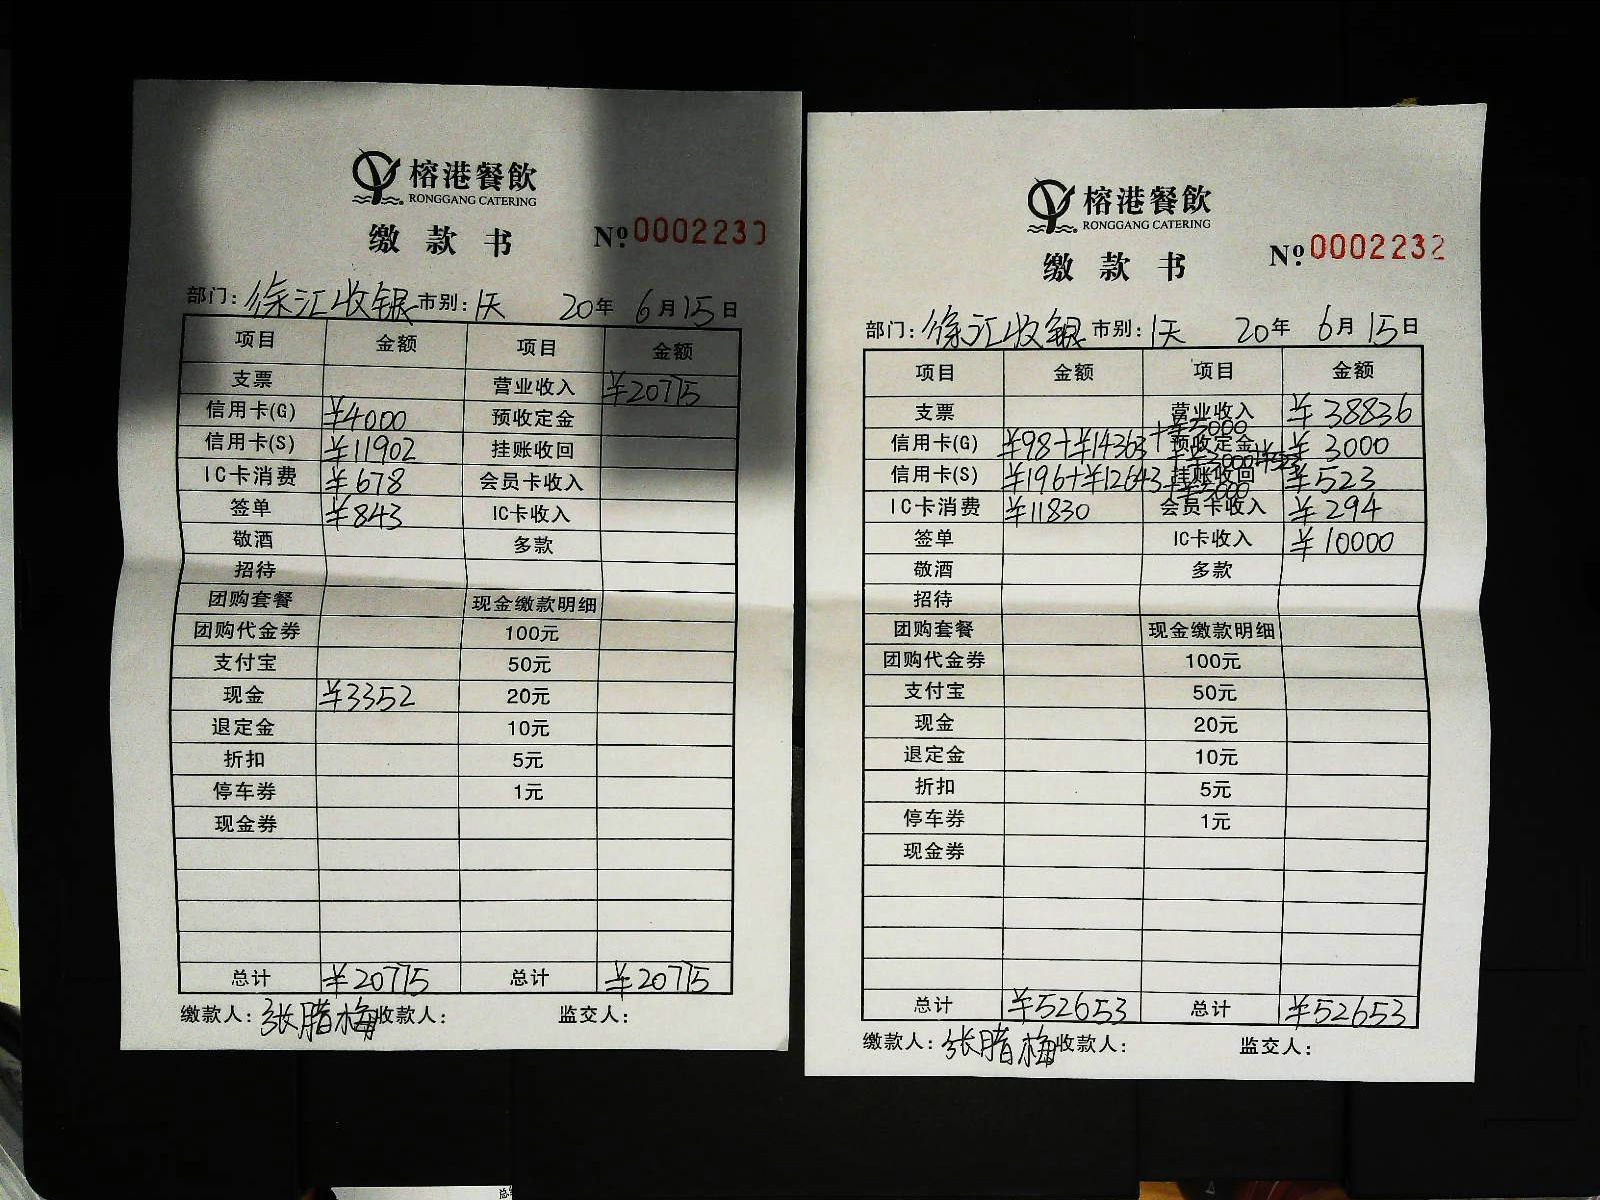 榕港餐飲
RONGGANG CATERING
缴款书 №:0002230
部门:徐汇收银 市别:1天 20年6月15日
项目 金额 项目 金额
支票 营业收入 ¥20775
信用卡(G) ¥4000 预收定金
信用卡(S) ¥11902 挂账收回
IC卡消费 ¥678 会员卡收入
签单 ¥843 IC卡收入
敬酒 多款
招待
团购套餐 现金缴款明细
团购代金券 100元
支付宝 50元
现金 ¥3352 20元
退定金 10元
折扣 5元
停车券 1元
现金券
总计 ¥20775 总计 ¥20775
缴款人:张腊梅 收款人: 监交人:
榕港餐飲
RONGGANG CATERING
缴款书 №:0002232
部门:徐汇收银 市别:1天 20年6月15日
项目 金额 项目 金额
支票 营业收入 ¥38836
信用卡(G) ¥98+¥14363 预收定金 ¥3000
信用卡(S) ¥196+¥12643 挂账收回 ¥523
IC卡消费 ¥11830 会员卡收入 ¥294
签单 IC卡收入 ¥10000
敬酒 多款
招待
团购套餐 现金缴款明细
团购代金券 100元
支付宝 50元
现金 20元
退定金 10元
折扣 5元
停车券 1元
现金券
总计 ¥52653 总计 ¥52653
缴款人:张腊梅 收款人: 监交人: